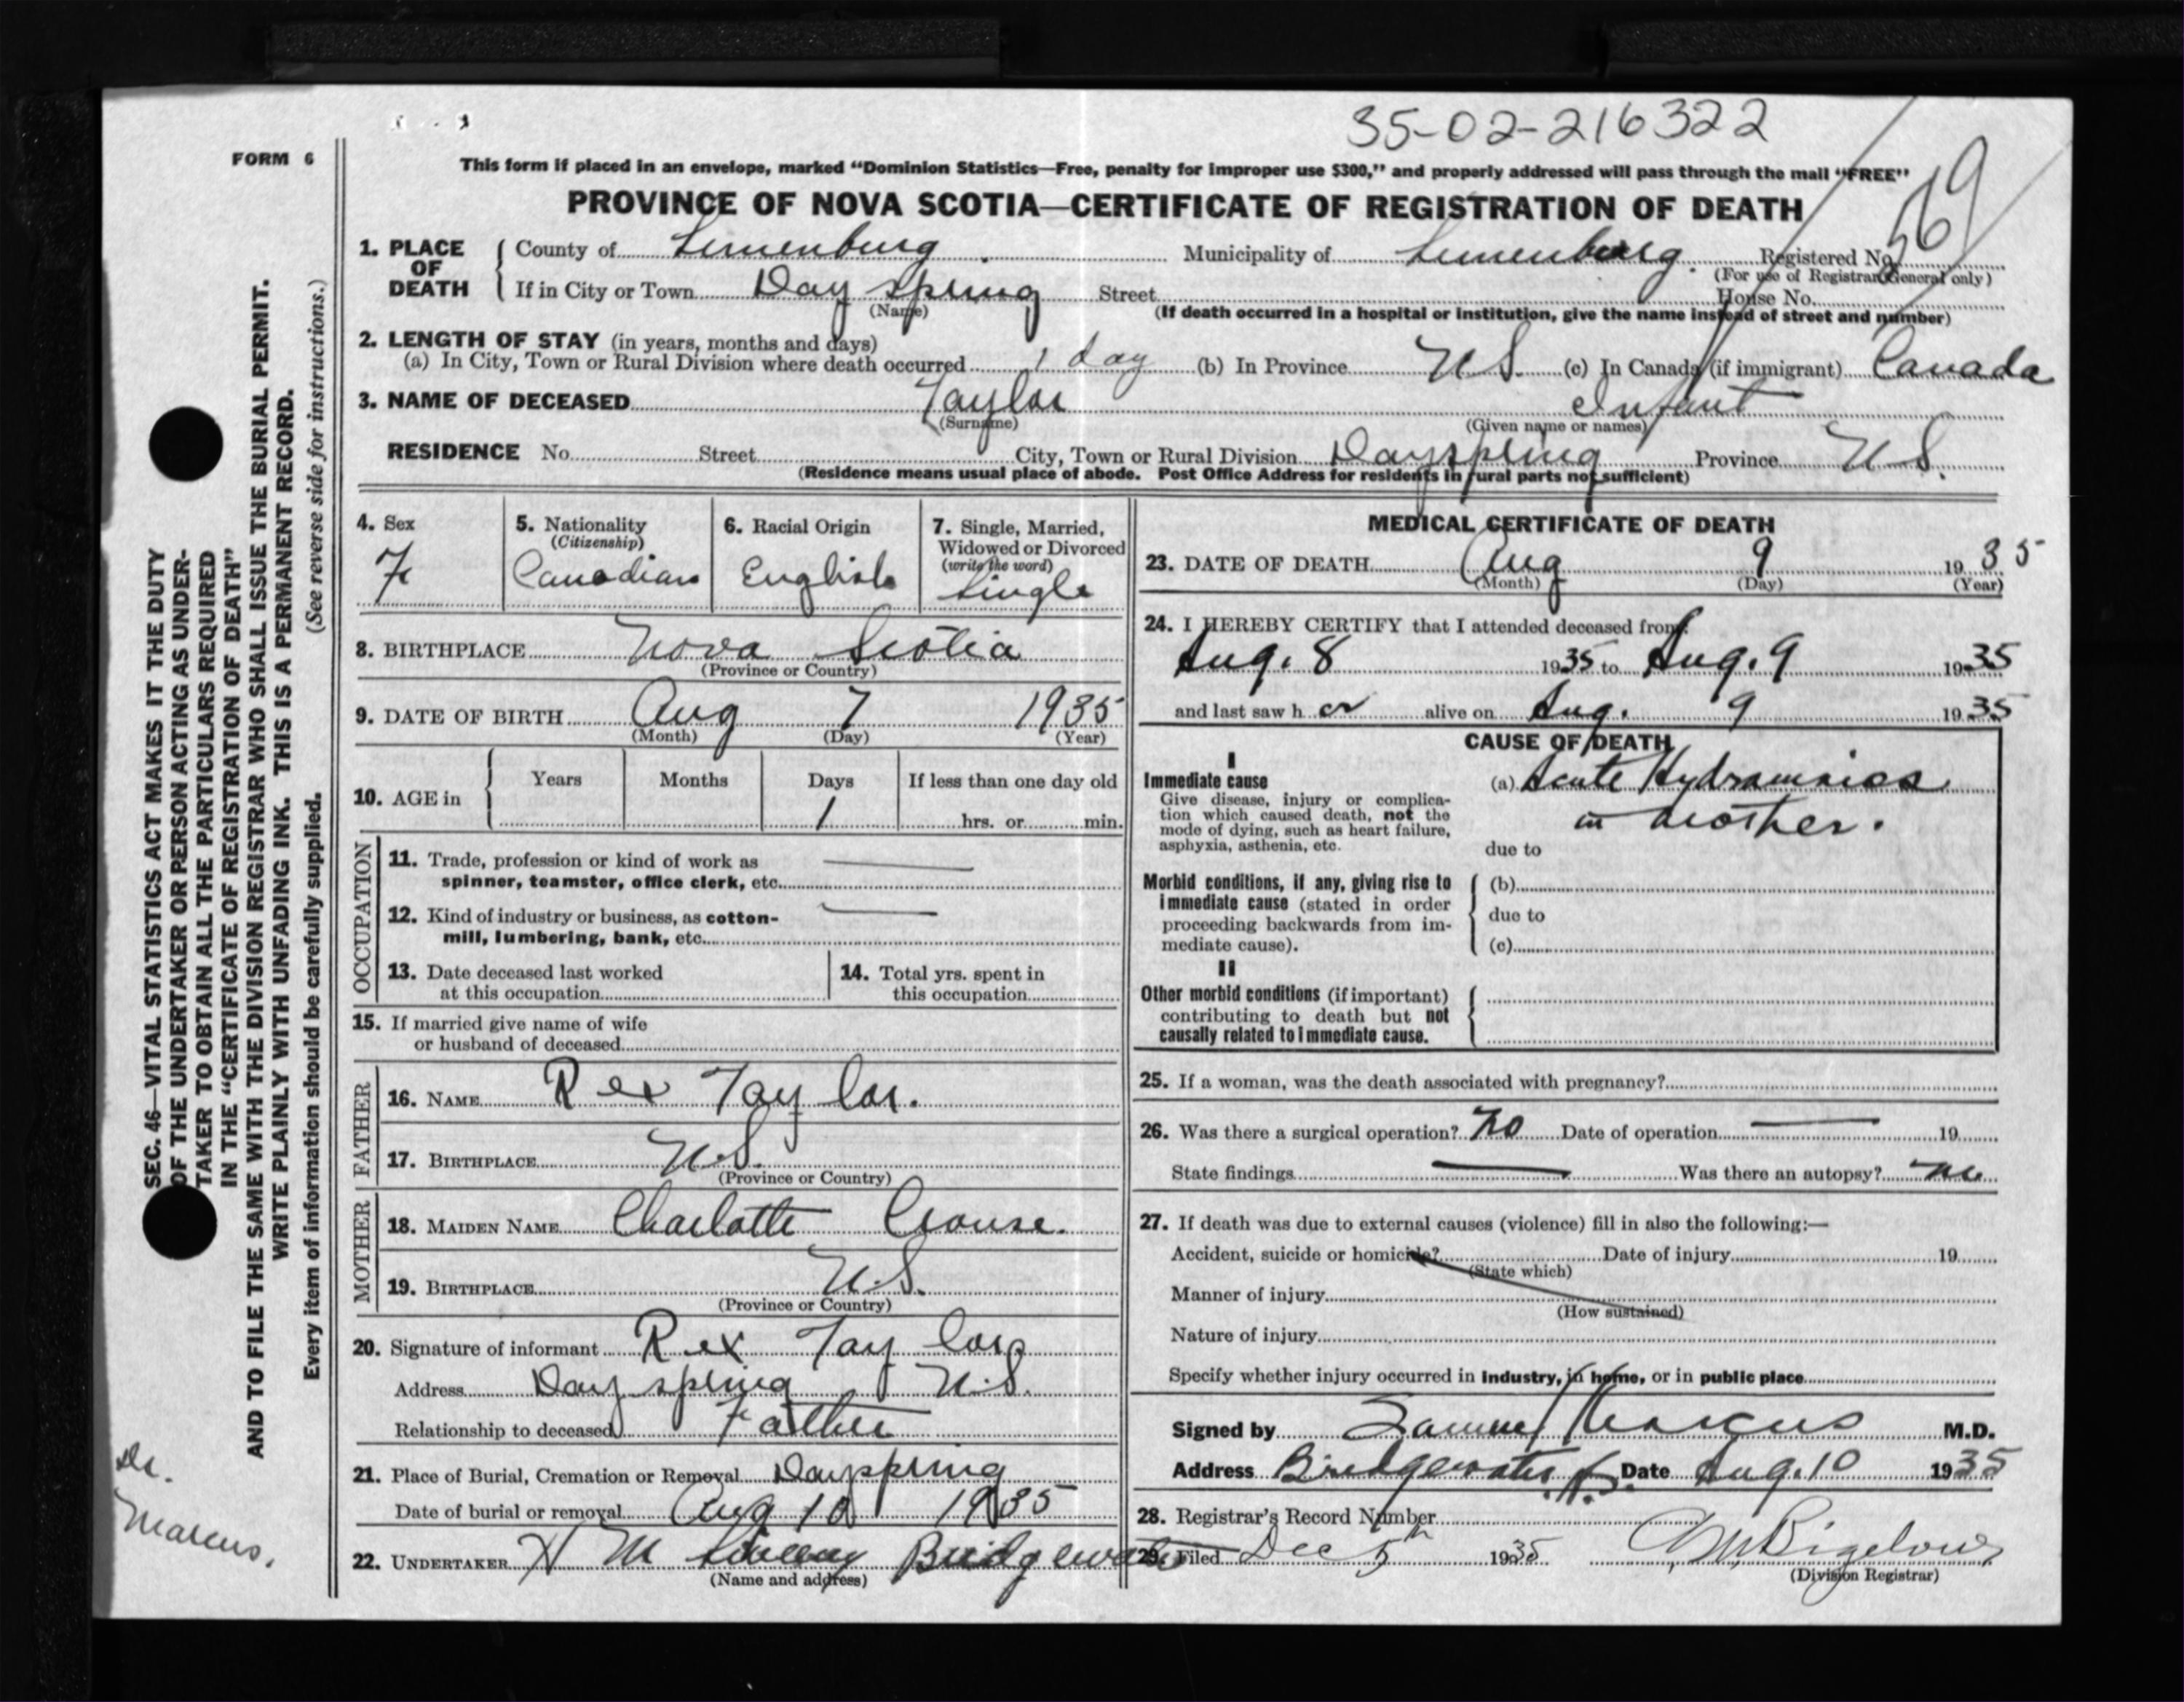 35-02-216322
FORM 6
This form if placed in an envelope, marked "Dominion Statistics—Free, penalty for improper use $300," and properly addressed will pass through the mail "FREE"
PROVINCE OF NOVA SCOTIA—CERTIFICATE OF REGISTRATION OF DEATH
569
1. PLACE OF DEATH County of Lunenburg Municipality of Lunenburg Registered No.
(For use of Registrar General only)
If in City or Town Day spring Street House No.
(Name) (If death occurred in a hospital or institution, give the name instead of street and number)
2. LENGTH OF STAY (in years, months and days)
(a) In City, Town or Rural Division where death occurred 1 day (b) In Province N.S. (c) In Canada (if immigrant) Canada
3. NAME OF DECEASED Taylor Infant
(Surname) (Given name or names)
RESIDENCE No. Street City, Town or Rural Division Dayspring Province N.S.
(Residence means usual place of abode. Post Office Address for residents in rural parts not sufficient)
4. Sex
F
5. Nationality
(Citizenship)
Canadian
6. Racial Origin
English
7. Single, Married,
Widowed or Divorced
(write the word)
Single
8. BIRTHPLACE Nova Scotia
(Province or Country)
9. DATE OF BIRTH Aug 7 1935
(Month) (Day) (Year)
10. AGE in Years Months Days If less than one day old
1 hrs. or min.
OCCUPATION
11. Trade, profession or kind of work as
spinner, teamster, office clerk, etc.
12. Kind of industry or business, as cotton-
mill, lumbering, bank, etc.
13. Date deceased last worked
at this occupation
14. Total yrs. spent in
this occupation
15. If married give name of wife
or husband of deceased
FATHER
16. NAME Rex Taylor.
17. BIRTHPLACE N.S.
(Province or Country)
MOTHER
18. MAIDEN NAME Charlotte Crouse.
19. BIRTHPLACE N.S.
(Province or Country)
20. Signature of informant Rex Taylor
Address Day spring N.S.
Relationship to deceased Father
21. Place of Burial, Cremation or Removal Dayspring
Date of burial or removal Aug 10 1935
22. UNDERTAKER H M Bridgewater
(Name and address)
MEDICAL CERTIFICATE OF DEATH
23. DATE OF DEATH Aug 9 1935
(Month) (Day) (Year)
24. I HEREBY CERTIFY that I attended deceased from:
Aug. 8 1935 to Aug. 9 1935
and last saw h er alive on Aug. 9 1935
CAUSE OF DEATH
I
Immediate cause
Give disease, injury or complica-
tion which caused death, not the
mode of dying, such as heart failure,
asphyxia, asthenia, etc.
(a) Acute Hydramnios
in mother.
due to
Morbid conditions, if any, giving rise to
immediate cause (stated in order
proceeding backwards from im-
mediate cause).
(b)
due to
(c)
II
Other morbid conditions (if important)
contributing to death but not
causally related to immediate cause.
25. If a woman, was the death associated with pregnancy?
26. Was there a surgical operation? No Date of operation 19
State findings Was there an autopsy? No
27. If death was due to external causes (violence) fill in also the following:—
Accident, suicide or homicide? Date of injury 19
(State which)
Manner of injury
(How sustained)
Nature of injury
Specify whether injury occurred in industry, in home, or in public place
Signed by Samuel Marcus M.D.
Address Bridgewater N.S. Date Aug. 10 1935
28. Registrar's Record Number
29. Filed Dec 5th 1935 Bigelow
(Division Registrar)
SEC. 46—VITAL STATISTICS ACT MAKES IT THE DUTY
OF THE UNDERTAKER OR PERSON ACTING AS UNDER-
TAKER TO OBTAIN ALL THE PARTICULARS REQUIRED
IN THE "CERTIFICATE OF REGISTRATION OF DEATH"
AND TO FILE THE SAME WITH THE DIVISION REGISTRAR WHO SHALL ISSUE THE BURIAL PERMIT.
WRITE PLAINLY WITH UNFADING INK. THIS IS A PERMANENT RECORD.
Every item of information should be carefully supplied. (See reverse side for instructions.)
Dr.
Marcus.